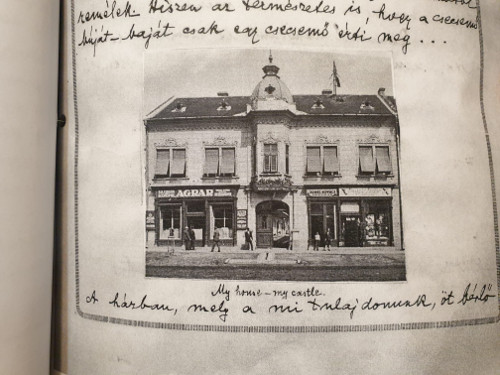 remélek. Hiszen az természetes is, hogy a csecsemő
búját-baját csak egy csecsemő érti meg ...
AGRAR
My house – my castle.
A házban, mely a mi tulajdonunk, öt bérlő